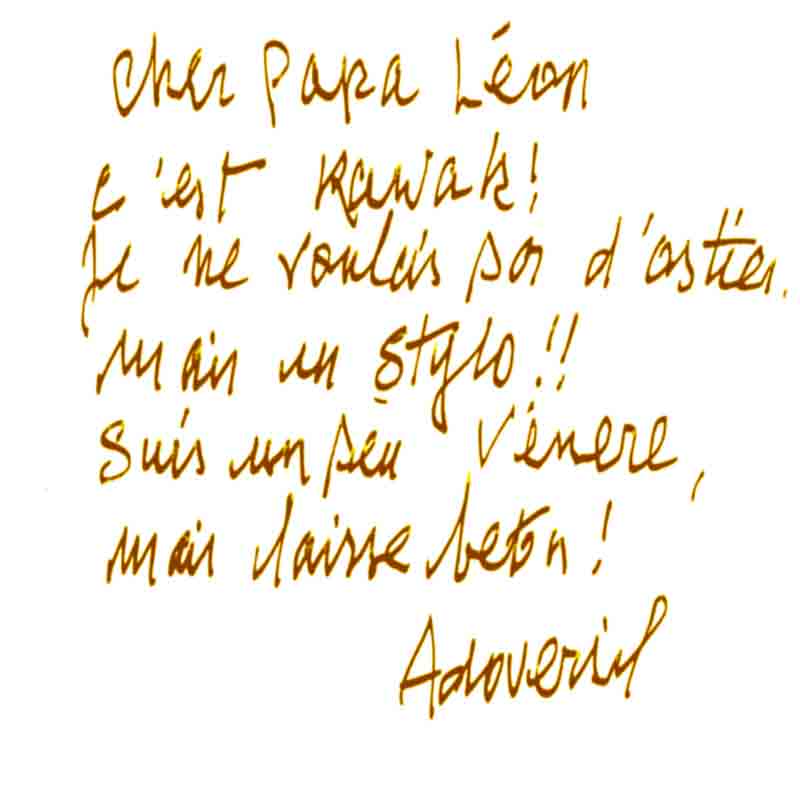 Cher Papa Léon
c'est Kawak!
Je ne voulais pas d'astier.
mais un stylo!!
Suis un peu Vénere,
mais laisse beton!